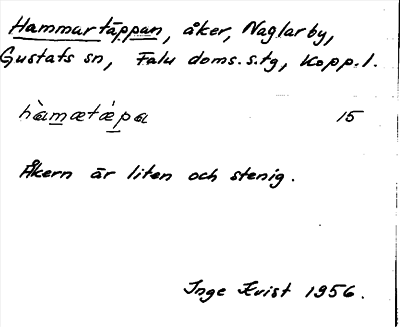 Hammartäppan, åker, Naglarby,
Gustafs sn, Falu doms.s.tg, Kopp.l.
hàmætæ̀pa 15
Åkern är liten och stenig.
Inge Kvist 1956.